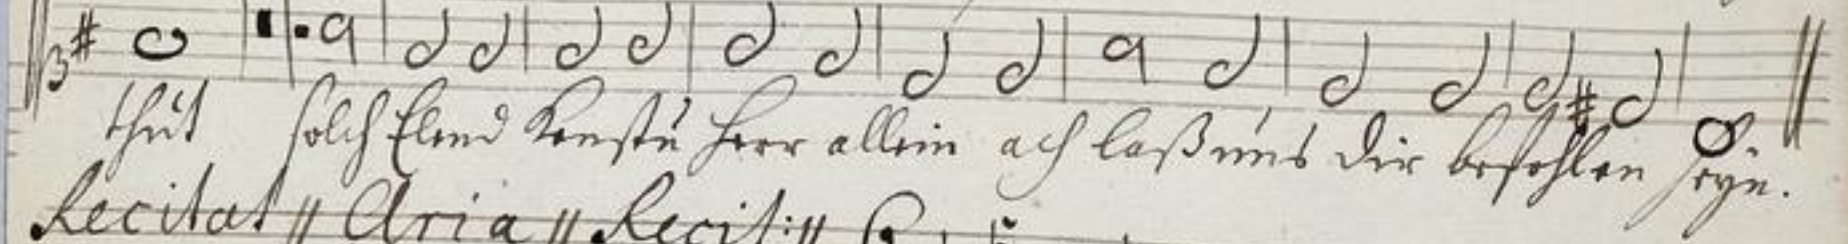 thut solch Elend kenstu Herr allein ach laß uns dir befohlen seyn.
Recitat // Aria // Recit: //